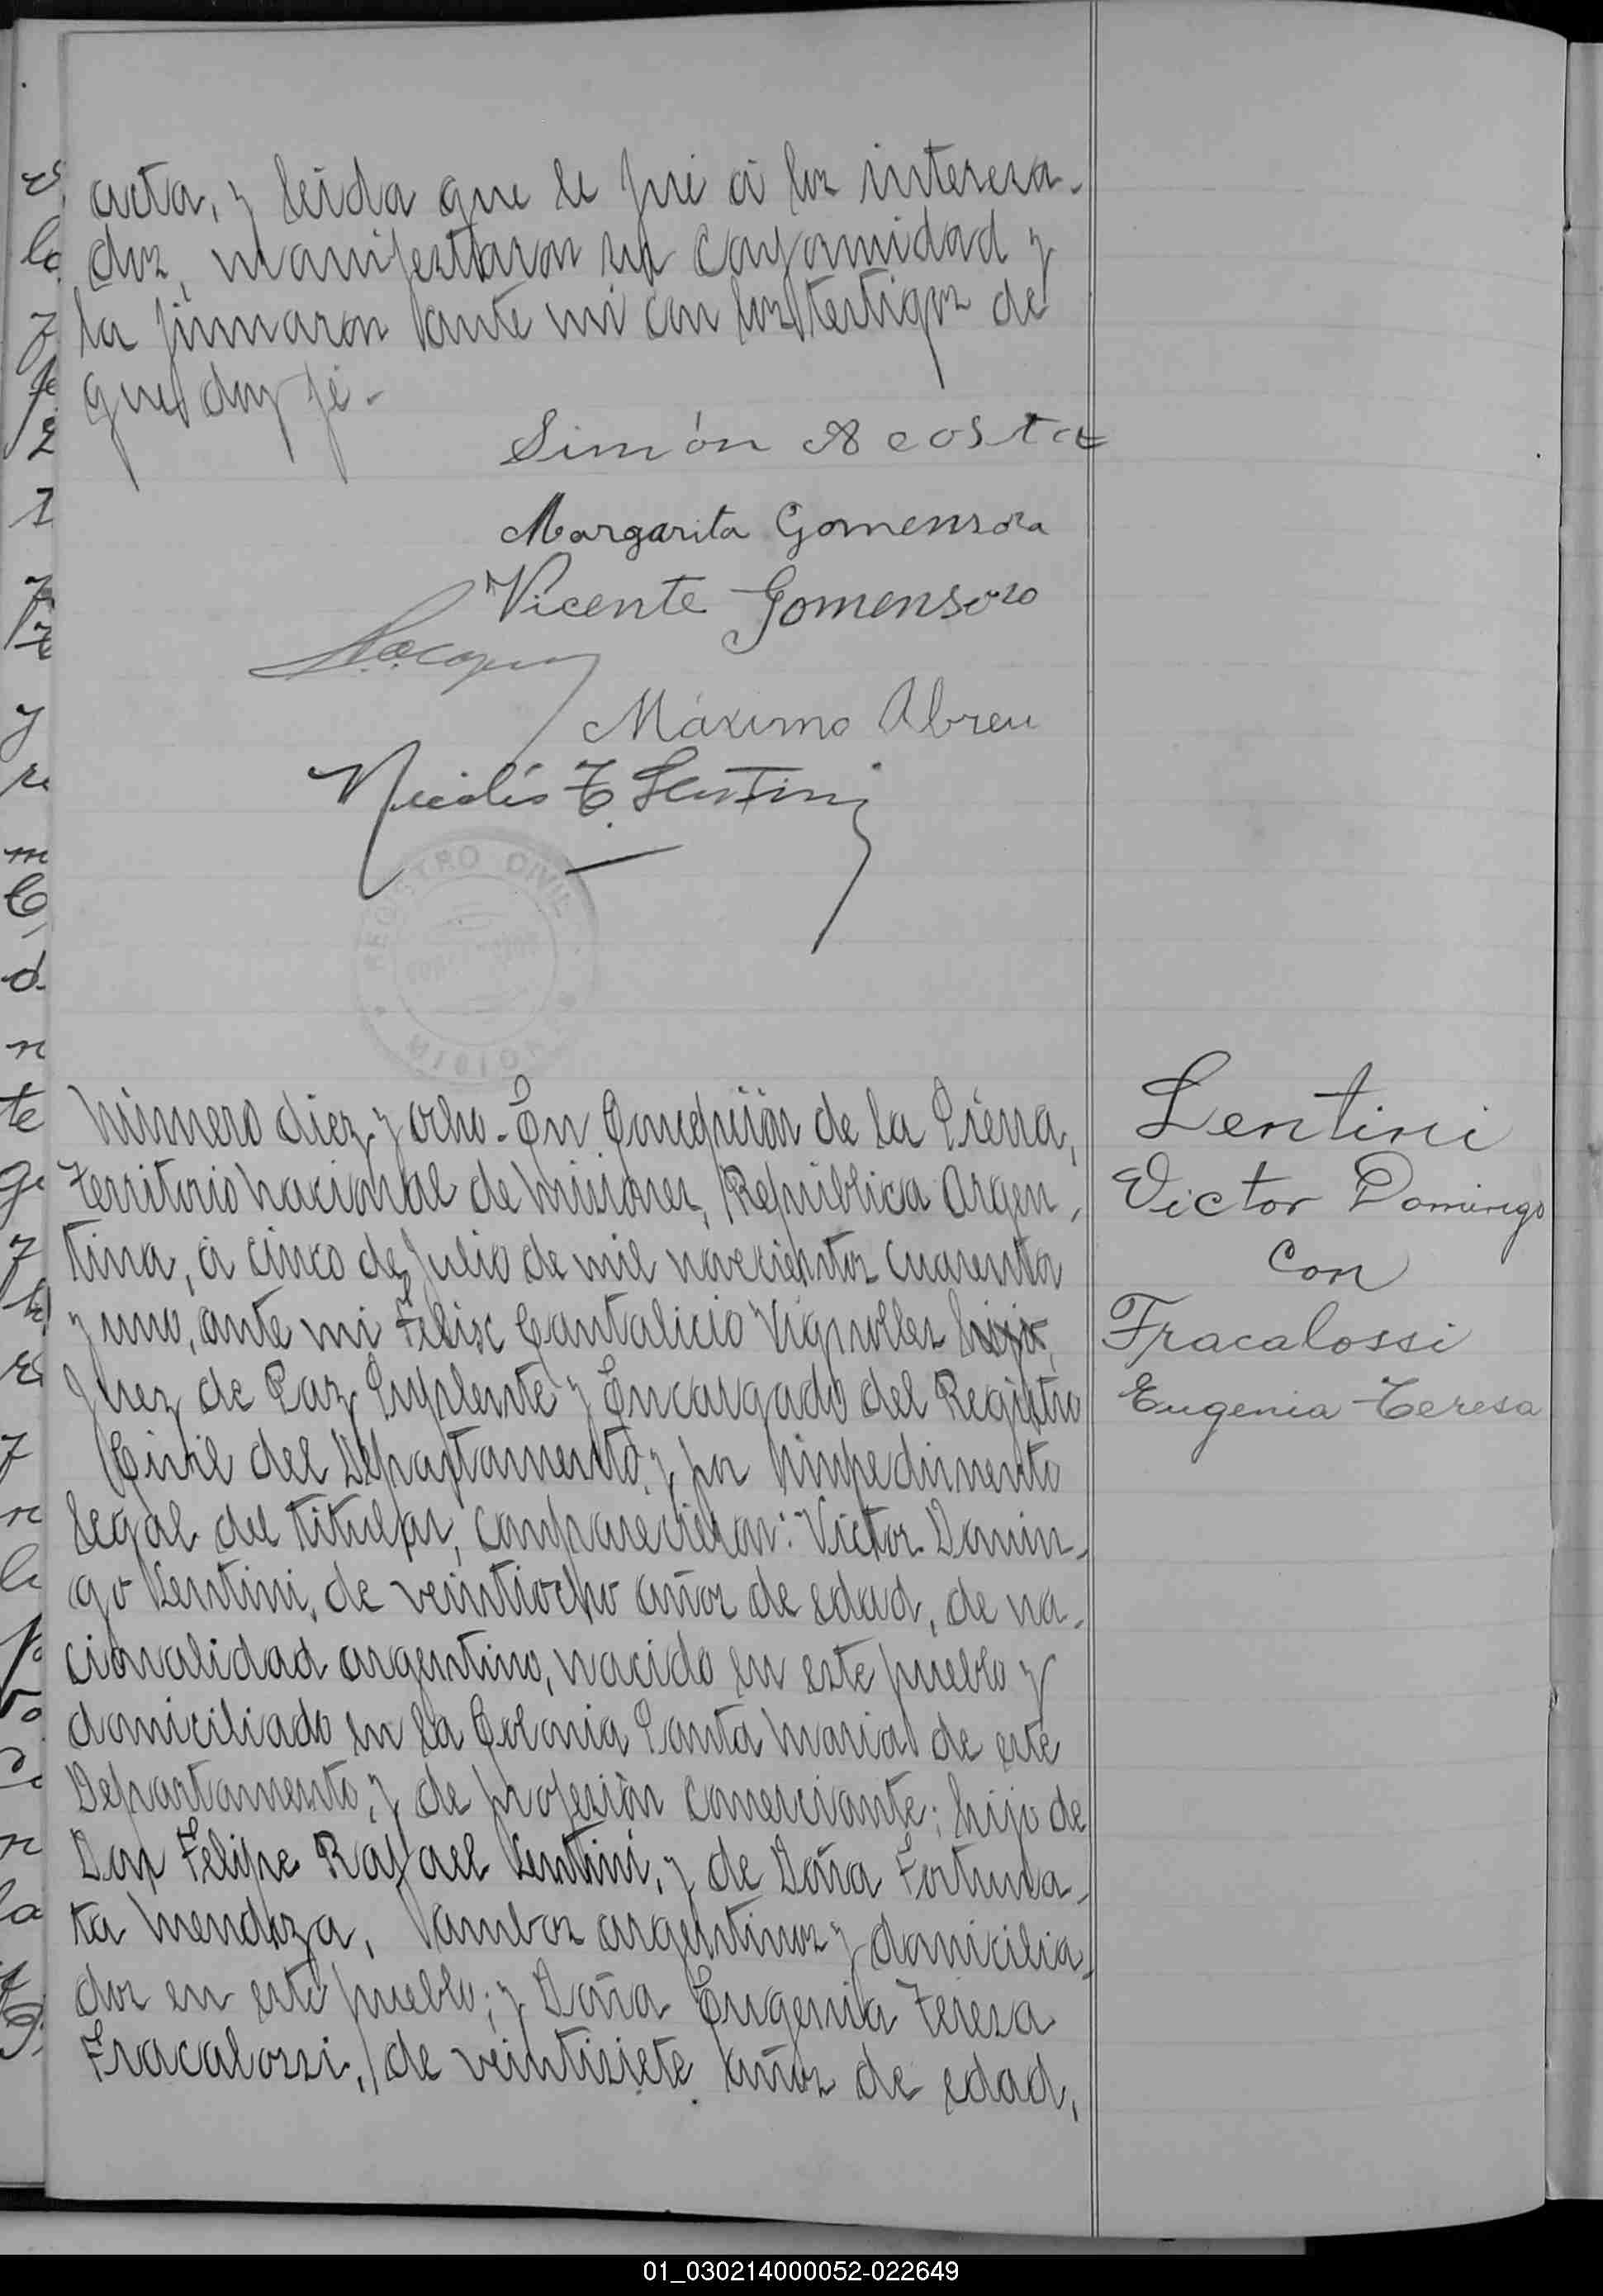 acta, y leida que le fué á los interesa-
dos, manifestaron su conformidad y
la firmaron ante mi con los testigos de
que doy fé.-
Simón Acosta
Margarita Gomensoro
Vicente Gomensoro
Máximo Abreu
Nicolás T. Lentini
REGISTRO CIVIL
Número diez y ocho.- En Concepción de la Sierra,
Territorio Nacional de Misiones, República Argen-
tina, á cinco de Julio de mil novecientos cuarenta
y uno, ante mi Felix Cantalicio Vignolles hijo,
Juez de Paz Suplente y Encargado del Registro
Civil del Departamento, y por impedimento
legal del titular, comparecieron: Victor Domin-
go Lentini, de veintiocho años de edad, de na-
cionalidad argentino, nacido en este pueblo y
domiciliado en la Colonia Santa Maria de este
Departamento, y de profesión comerciante; hijo de
Don Felipe Rafael Lentini, y de Doña Fortuna-
ta Mendoza, ambos argentinos y domicilia-
dos en este pueblo; y Doña Eugenia Teresa
Fracalossi, de veintisiete años de edad,
Lentini
Victor Domingo
con
Fracalossi
Eugenia Teresa
01_030214000052-022649